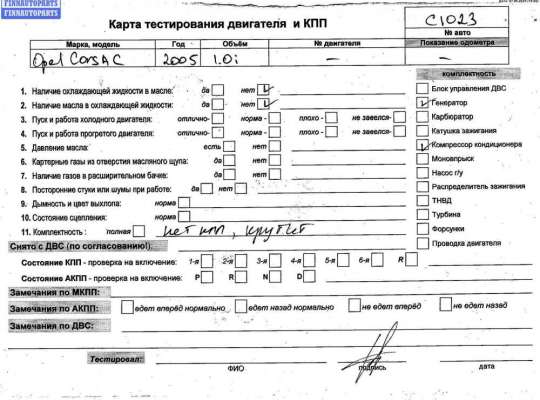 FINNAUTOPARTS
FINNAUTOPARTS
Карта тестирования двигателя и КПП
C1023
№ авто
Марка, модель Год Объём № двигателя Показание одометра
Opel Corsa C 2005 1.0i — —
комплектность
1. Наличие охлаждающей жидкости в масле: да нет
2. Наличие масла в охлаждающей жидкости: да нет
3. Пуск и работа холодного двигателя: отлично- норма - плохо - не завелся-
4. Пуск и работа прогретого двигателя: отлично- норма - плохо - не завелся-
5. Давление масла: есть нет
6. Картерные газы из отверстия масляного щупа: да нет
7. Наличие газов в расширительном бачке: да нет
8. Посторонние стуки или шумы при работе: да нет
9. Дымность и цвет выхлопа: норма
10. Состояние сцепления: норма
11. Комплектность : полная нет кпп, крутит
Блок управления ДВС
Генератор
Карбюратор
Катушка зажигания
Компрессор кондиционера
Моновпрыск
Насос г/у
Распределитель зажигания
ТНВД
Турбина
Форсунки
Проводка двигателя
Снято с ДВС (по согласованию!):
Состояние КПП - проверка на включение: 1-я 2-я 3-я 4-я 5-я 6-я R
Состояние АКПП - проверка на включение: P R N D
Замечания по МКПП:
Замечания по АКПП: едет вперёд нормально едет назад нормально не едет вперёд не едет назад
Замечания по ДВС:
Тестировал:
ФИО подпись дата